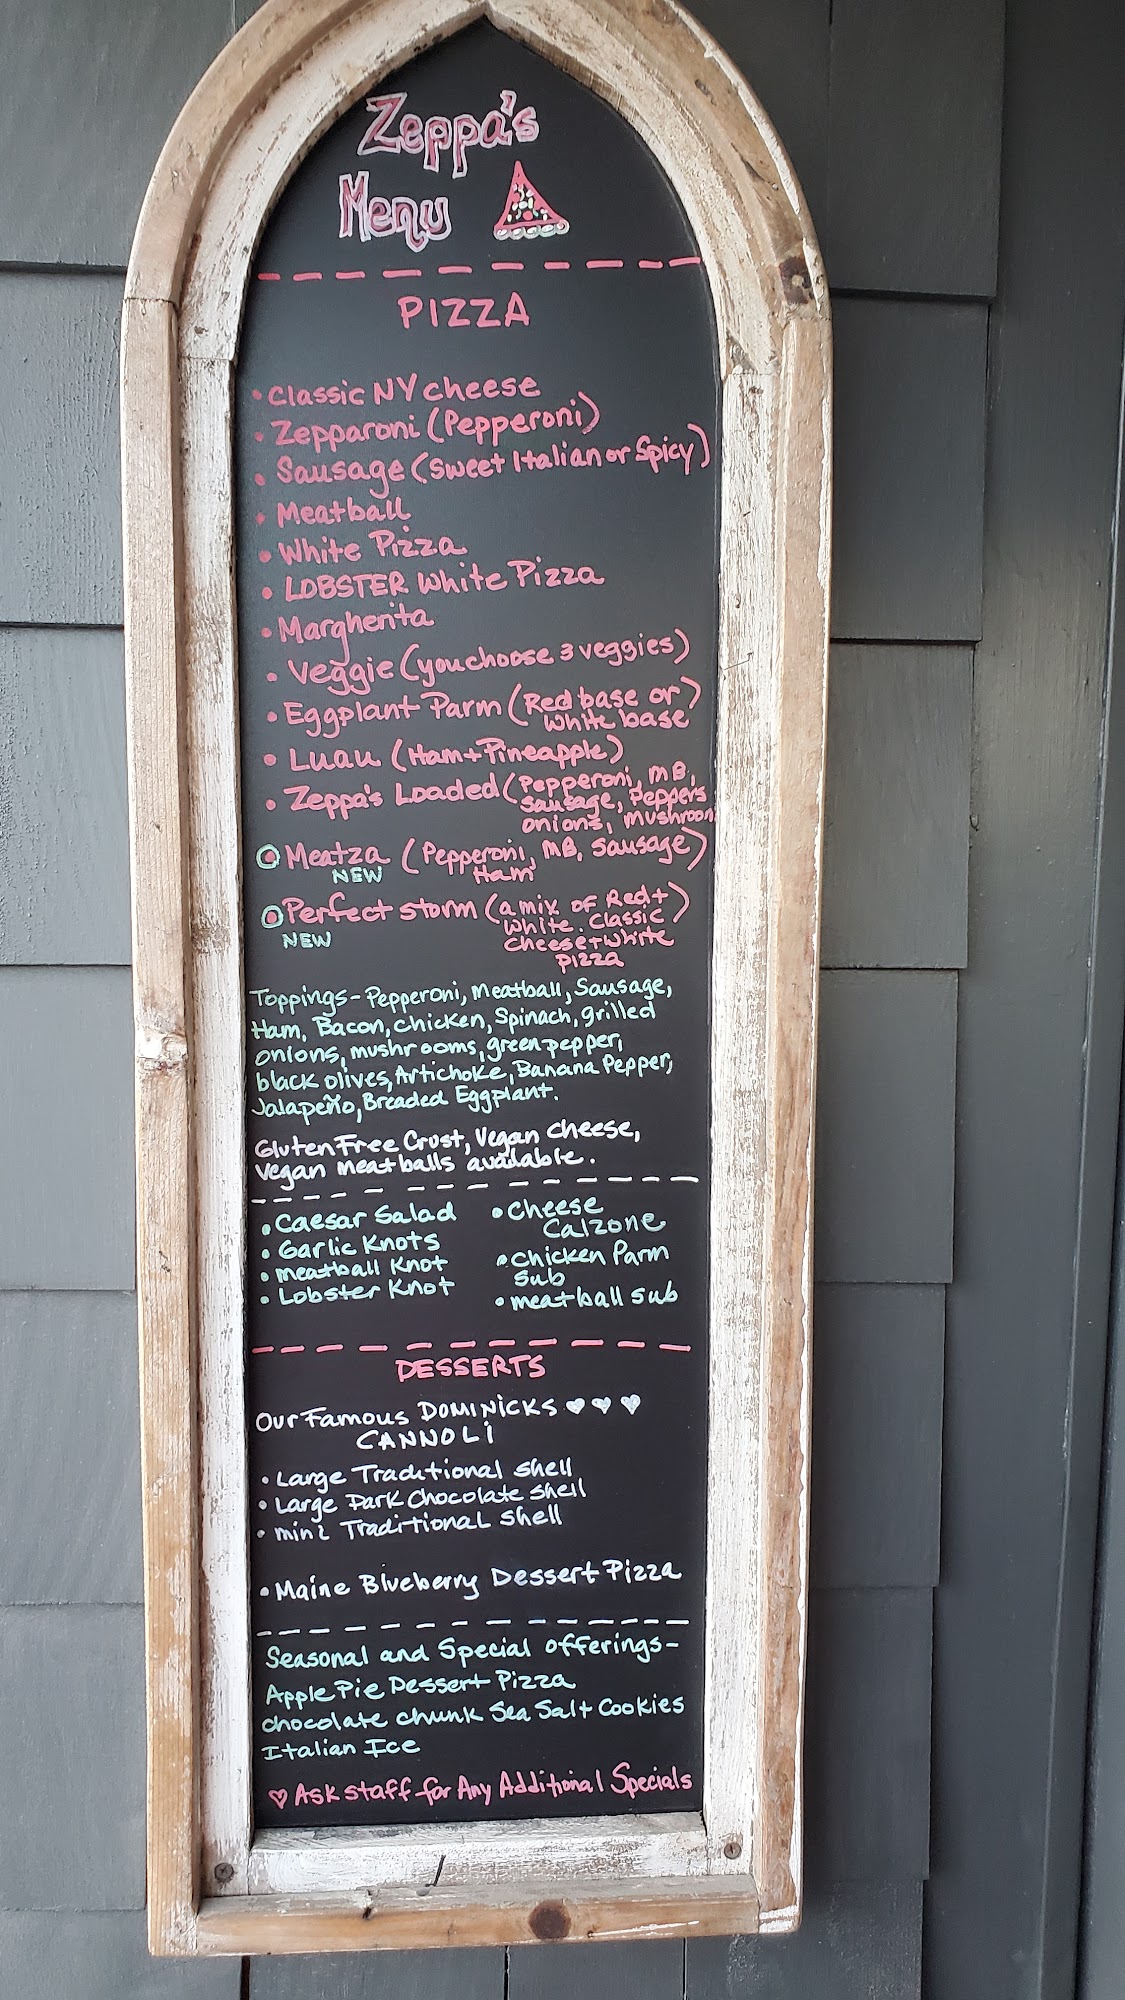 Zeppa's
Menu
PIZZA
• Classic NY cheese
• Zepparoni (Pepperoni)
• Sausage (sweet Italian or Spicy)
• Meatball
• White Pizza
• LOBSTER White Pizza
• Margherita
• Veggie (you choose 3 veggies)
• Eggplant Parm (Red base or)
White base
• Luau (Ham + Pineapple)
• Zeppa's Loaded (Pepperoni, MB,
Sausage, Peppers
onions, mushroom
• Meatza (Pepperoni, MB, Sausage)
NEW Ham
• Perfect storm (a mix of Red +)
NEW White. Classic
Cheese + White
pizza
Toppings - Pepperoni, Meatball, Sausage,
Ham, Bacon, chicken, Spinach, grilled
onions, mushrooms, green pepper,
black olives, Artichoke, Banana Pepper,
Jalapeño, Breaded Eggplant.
Gluten Free Crust, Vegan Cheese,
Vegan meatballs available.
• Caesar Salad
• Garlic Knots
• meatball Knot
• Lobster Knot
• Cheese
Calzone
• Chicken Parm
Sub
• meatball sub
DESSERTS
Our Famous DOMINICKS ♥ ♥ ♥
CANNOLI
• Large Traditional shell
• Large Dark Chocolate shell
• mini Traditional shell
• Maine Blueberry Dessert Pizza
Seasonal and Special offerings-
Apple Pie Dessert Pizza
chocolate chunk Sea Salt Cookies
Italian Ice
♡ Ask staff for Any Additional Specials